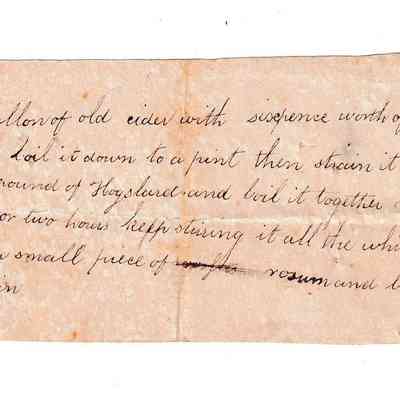 llon of old cider with sixpence worth of
boil it down to a pint then strain it
pound of Hogslard and boil it together
or two hours keep stiring it all the whi
small piece of rosum and b
in